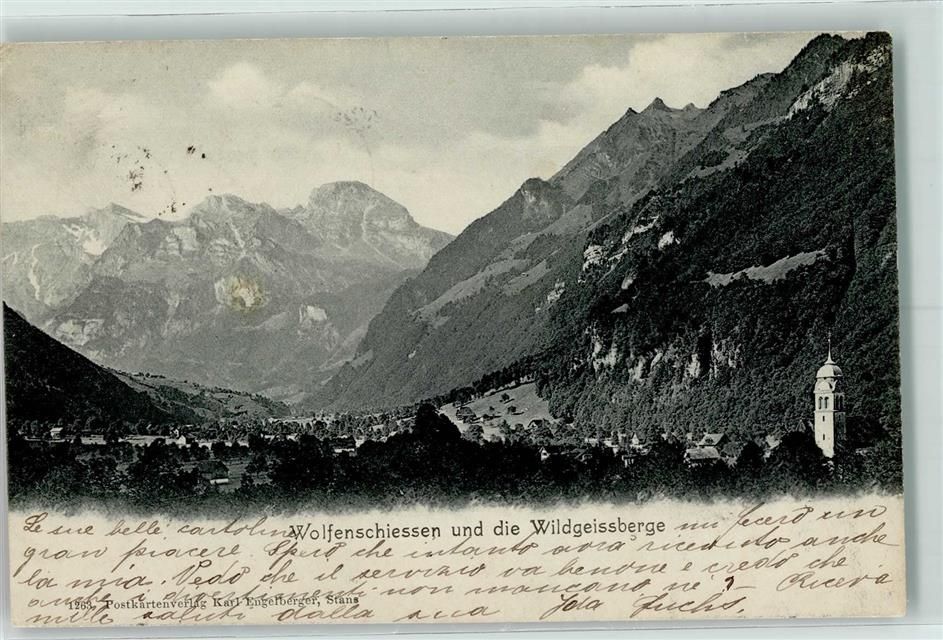 Wolfenschiessen und die Wildgeissberge
Le sue belle cartoline mi fecero un
gran piacere. Spero che intanto avrà ricevuto anche
la mia. Vedo che il servizio va benone e credo che
anche i divertimenti non mancano nè? Riceva
1263, Postkartenverlag Karl Engelberger, Stans
mille saluti dalla sua Ida Fuchs.